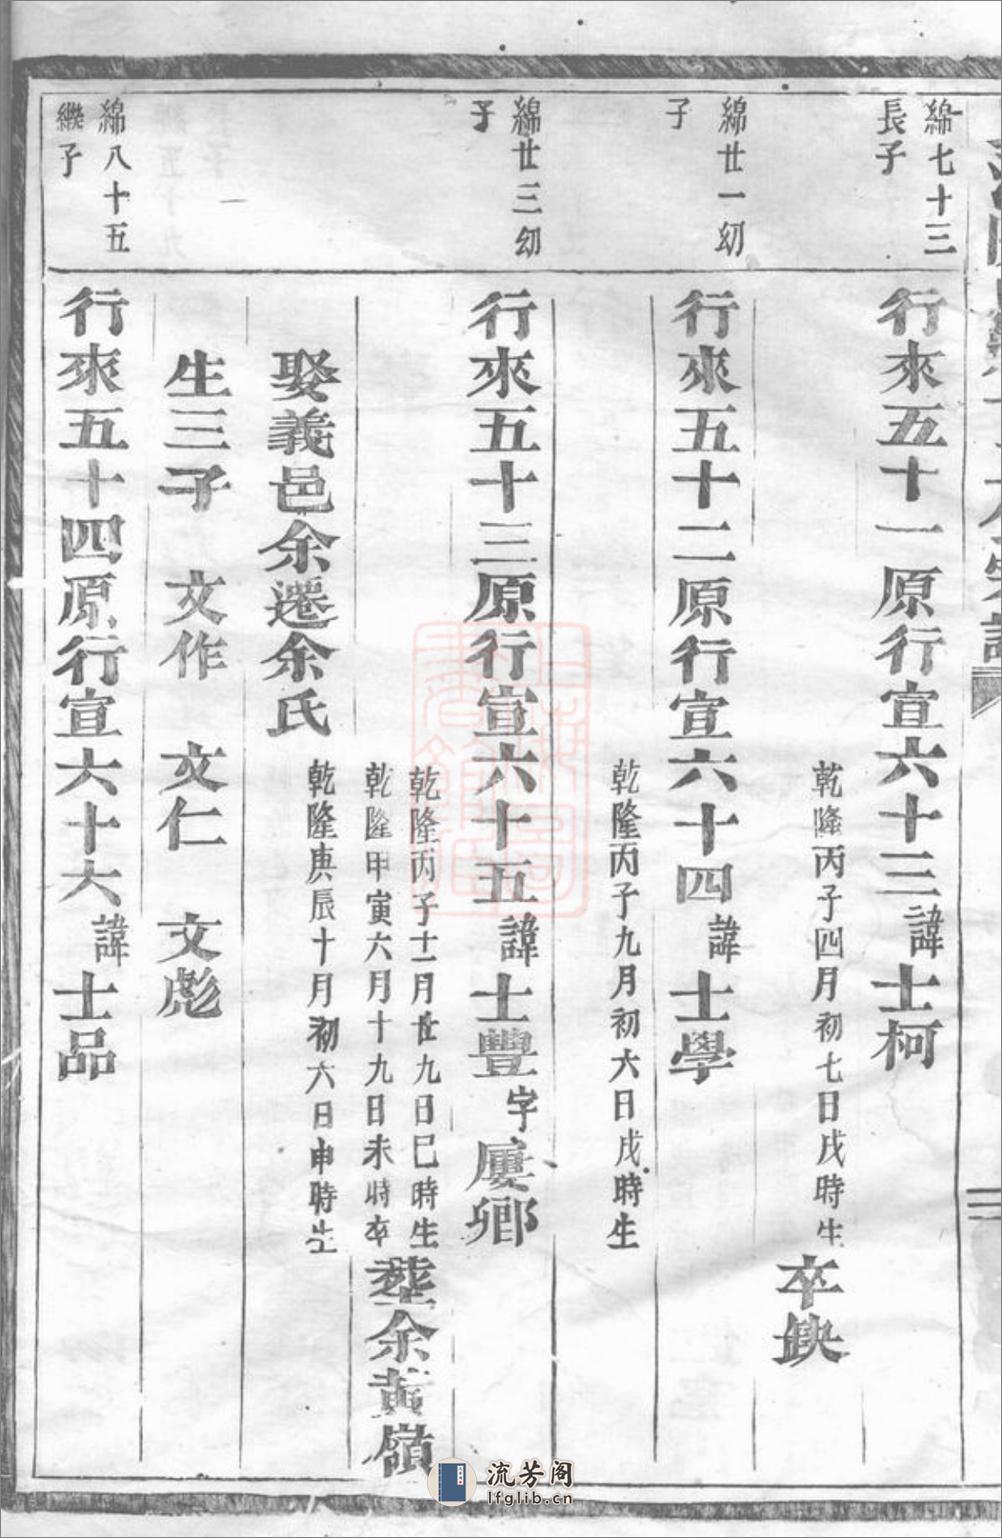 綿七十三
長子
行來五十一原行宣六十三諱士柯
乾隆丙子四月初七日戌時生
卒缺
綿廿一幼
子
行來五十二原行宣六十四諱士學
乾隆丙子九月初六日戌時生
綿廿三幼
子
行來五十三原行宣六十五諱士豐字慶卿
乾隆丙子十一月廿九日巳時生
乾隆甲寅六月十九日未時卒
葬余黃嶺
娶義邑余遷余氏
乾隆庚辰十月初六日申時生
生三子 文作 文仁 文彪
綿八十五
繼子
行來五十四原行宣六十六諱士品
流芳阁
lfglib.cn